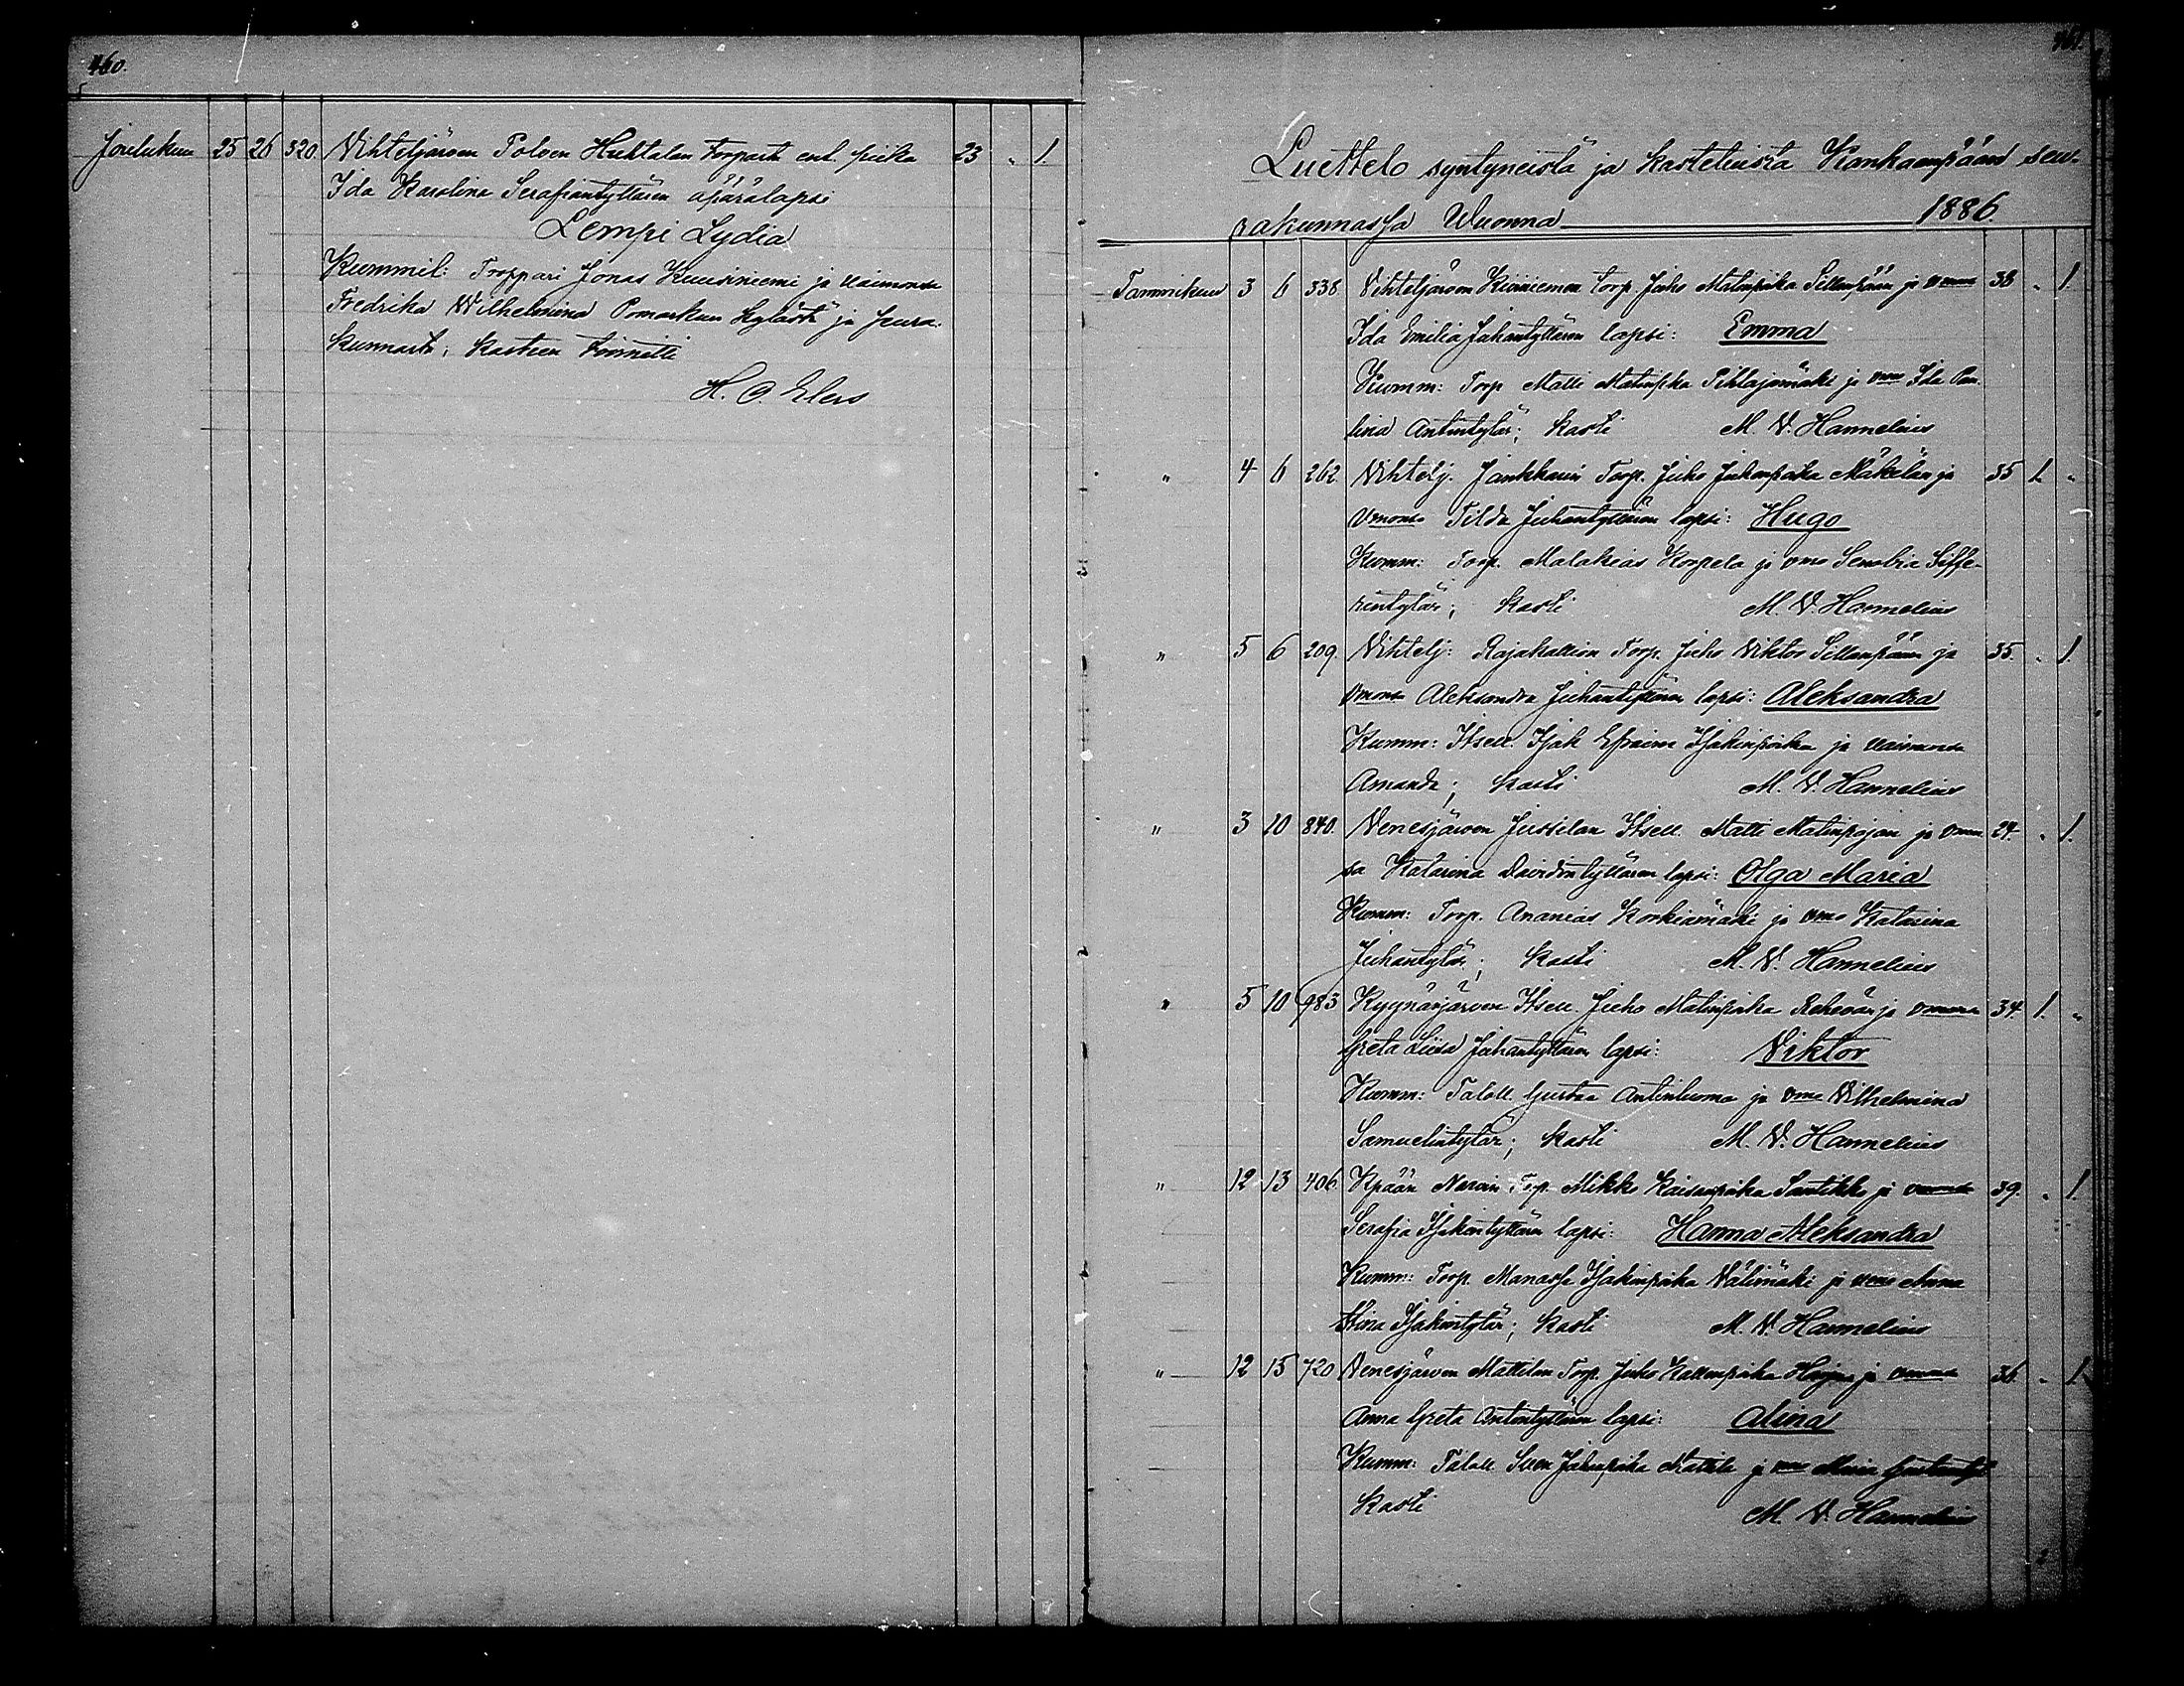 460.
Joulukuu 25 26 320. Vihteljärven Polven Huhtalan Torpasta ent. piika 23 „ 1
Ida Karolina Serafiantyttären äpärälapsi
Lempi Lydia
Kummit: Torppari Jonas Kuusiniemi ja vaimonsa
Fredrika Wilhelmina Pomarkun kylästä ja seura-
kunnasta; kasteen toimitti
H. O. Elers
461.
Luettelo syntyneistä ja kastetuista Kankaanpään seu-
rakunnassa Wuonna 1886.
Tammikuu 3 6 338 Vihteljärven Torp. Juho Matinpoika Sillanpään ja 38 „ 1.
Ida Emilia Juhantyttären lapsi: Emma
Kumm: Torp. Matti Matinpka Pihlajamäki ja vmo Ida Pau-
lina Antintytär; kasti M. V. Hannelius
„ 4 6 262. Vihtelj. Jankkarin Torp. Juho Juhanpoika Mäkelän ja 35 1. „
vmonsa Tilda Juhantyttären lapsi: Hugo
Kumm: Torp. Malakias Korpela ja vmo Senobia Siffe-
rintytär; kasti M. V. Hannelius
„ 5 6 209. Vihtelj: Rajakallion Torp. Juho Viktor Sillanpään ja 35. „ 1.
vmonsa Aleksandra Juhantyttären lapsi: Aleksandra
Kumm: Itsell. Isak Efraim Isakinpoika ja vaimonsa
Amanda; kasti M. V. Hannelius
„ 3 10 840. Venesjärven Jussilan Itsell. Matti Matinpojan ja vmon- 24. „ 1.
sa Katarina Davidintyttären lapsi: Olga Maria
Kumm: Torp. Ananias Korkiamäki ja vmo Katarina
Juhantytär; kasti M. V. Hannelius
„ 5 10 983 Kyynärjärven Itsell. Juho Matinpoika ja vmonsa 34 1. „
Greta Liisa Juhantyttären lapsi: Viktor
Kumm: Taloll. Gustaa Antinluoma ja vmo Vilhelmina
Samuelintytär; kasti M. V. Hannelius
„ 12 13 406 Kpään Narvin Torp. Mikko Kaisanpoika Santikko ja vmonsa 39. „ 1.
Serafia Isakintyttären lapsi: Hanna Aleksandra
Kumm: Torp. Manasse Isakinpoika Välimäki ja vmo Anna
Stina Isakintytär; kasti M. V. Hannelius
„ 12 15 720 Venesjärven Mattilan Torp. Juho Kallenpoika ja vmonsa 36. „ 1.
Anna Greta Antintyttären lapsi: Alina
Kumm: Taloll. Juhanpoika Mattila ja vmo Maria
kasti M. V. Hannelius